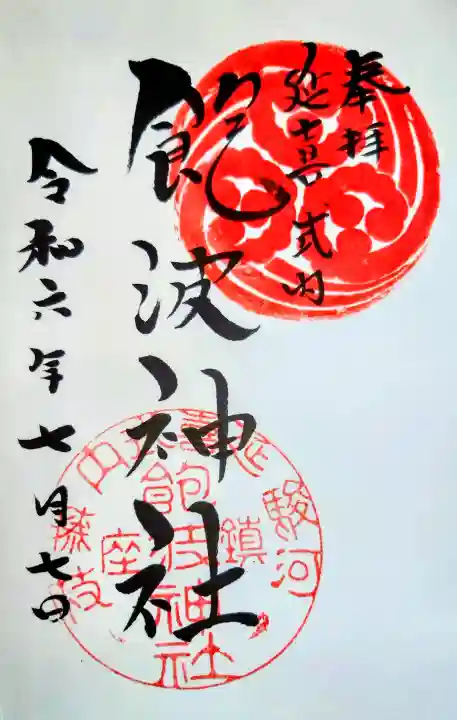 奉拝
延喜式内
飽波神社
令和六年七月七日
延喜式内
駿河
鎮座
藤枝
飽波神社